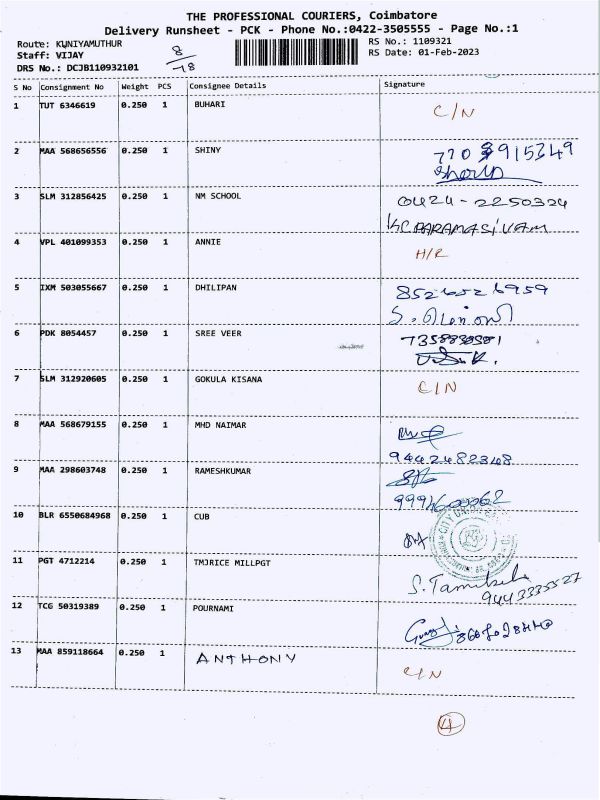 THE PROFESSIONAL COURIERS, Coimbatore
Delivery Runsheet - PCK - Phone No.:0422-3505555 - Page No.:1
Route: KUNIYAMUTHUR
Staff: VIJAY
DRS No.: DCJB110932101
8/78
RS No.: 1109321
RS Date: 01-Feb-2023
S No Consignment No Weight PCS Consignee Details Signature
1 TUT 6346619 0.250 1 BUHARI C/N
2 MAA 568656556 0.250 1 SHINY
3 SLM 312856425 0.250 1 NM SCHOOL 0424-2250324
KC PARAMASIVAM
4 VPL 401099353 0.250 1 ANNIE H/R
5 IXM 503055667 0.250 1 DHILIPAN 8526526959
6 PDK 8054457 0.250 1 SREE VEER
7 SLM 312920605 0.250 1 GOKULA KISANA C/N
8 MAA 568679155 0.250 1 MHD NAIMAR
9442482348
9 MAA 298603748 0.250 1 RAMESHKUMAR
10 BLR 6550684968 0.250 1 CUB
11 PGT 4712214 0.250 1 TMJRICE MILLPGT
9443335527
12 TCG 50319389 0.250 1 POURNAMI
13 MAA 859118664 0.250 1 ANTHONY C/N
4